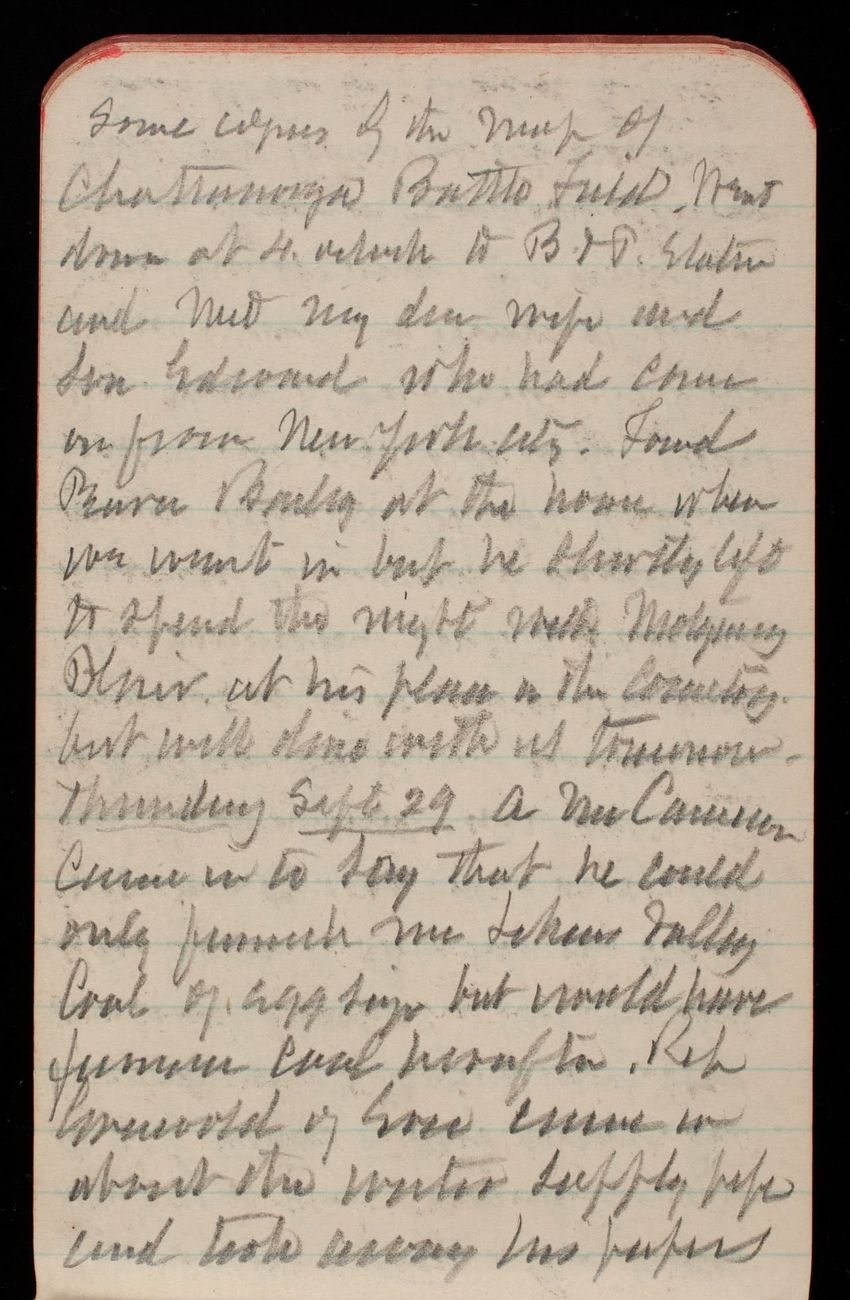 Some copies of the Map of
Chattanooga Battle Field. Went
down at 4. oclock to B & P. Station
and Met my dear wife and
Son Edward who had come
on from New York city. Found
Bailey at the house when
we went in but he shortly left
to spend the night with Montgomery
Blair at his place in the Country
but will dine with us tomorrow.
Thursday Sept 29 A Mr Cameron
Came in to say that he could
only furnish me Lykens Valley
Coal of egg size but would have
furnace coal hereafter. Rep
Griswold of Erie came in
about the water supply pipe
and took away his papers